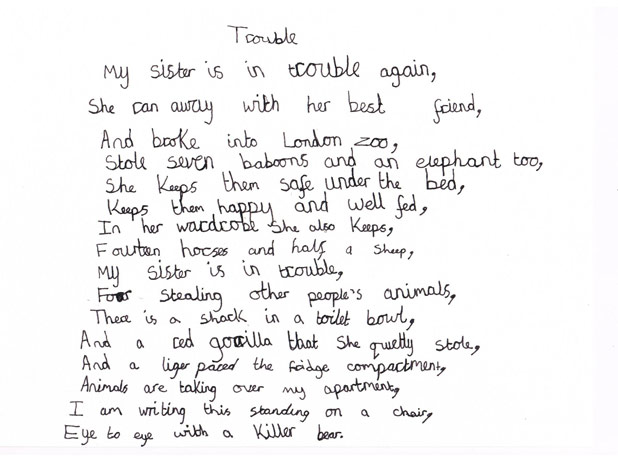 Trouble
My sister is in trouble again,
She ran away with her best friend,
And broke into London zoo,
Stole seven baboons and an elephant too,
She Keeps them safe under the bed,
Keeps them happy and well fed,
In her wardrobe She also Keeps,
Fourteen horses and half a Sheep,
My sister is in trouble,
For Stealing other people's animals,
There is a shark in a toilet bowl,
And a red gorilla that She quietly Stole,
And a liger paced the fridge compartment,
Animals are taking over my apartment,
I am writing this standing on a chair,
Eye to eye with a Killer bear.